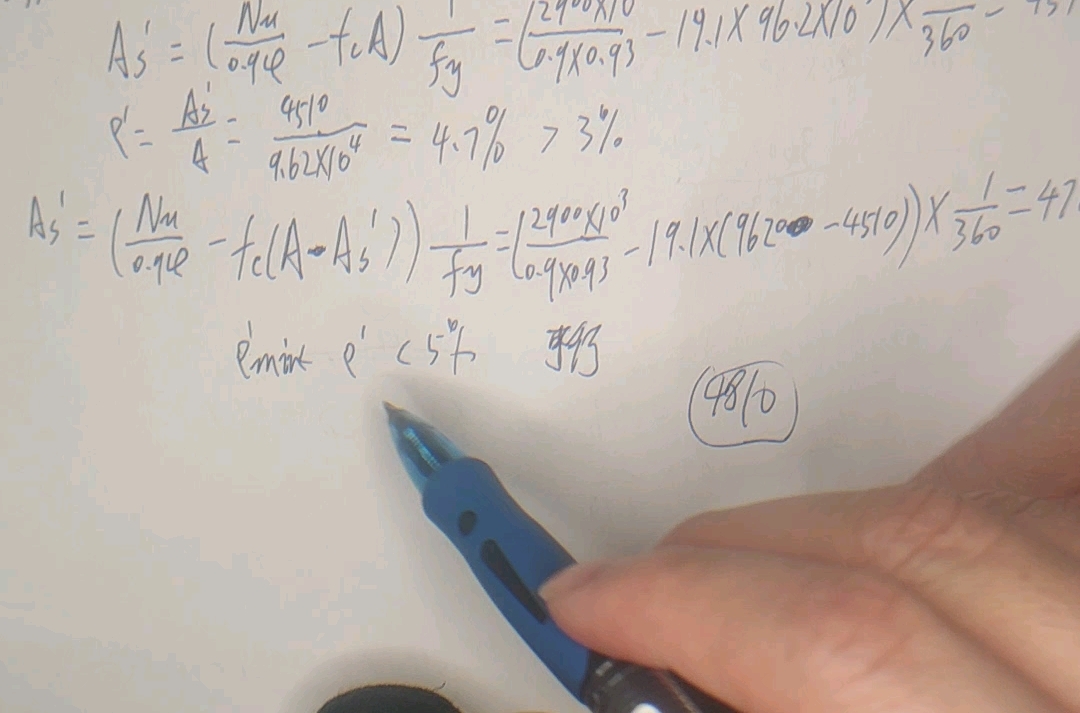 As' = (Nu/0.9φ - fcA) 1/fy = (2900×10/0.9×0.93 - 19.1×96.2×10)× /360 = 451
ρ' = As'/A = 4510/9.62×10⁴ = 4.7% > 3%
As' = (Nu/0.9φ - fc(A-As')) 1/fy = (2900×10³/0.9×0.93 - 19.1×(96200-4510))×1/360 = 47
ρ'min< ρ' < 5%
4810